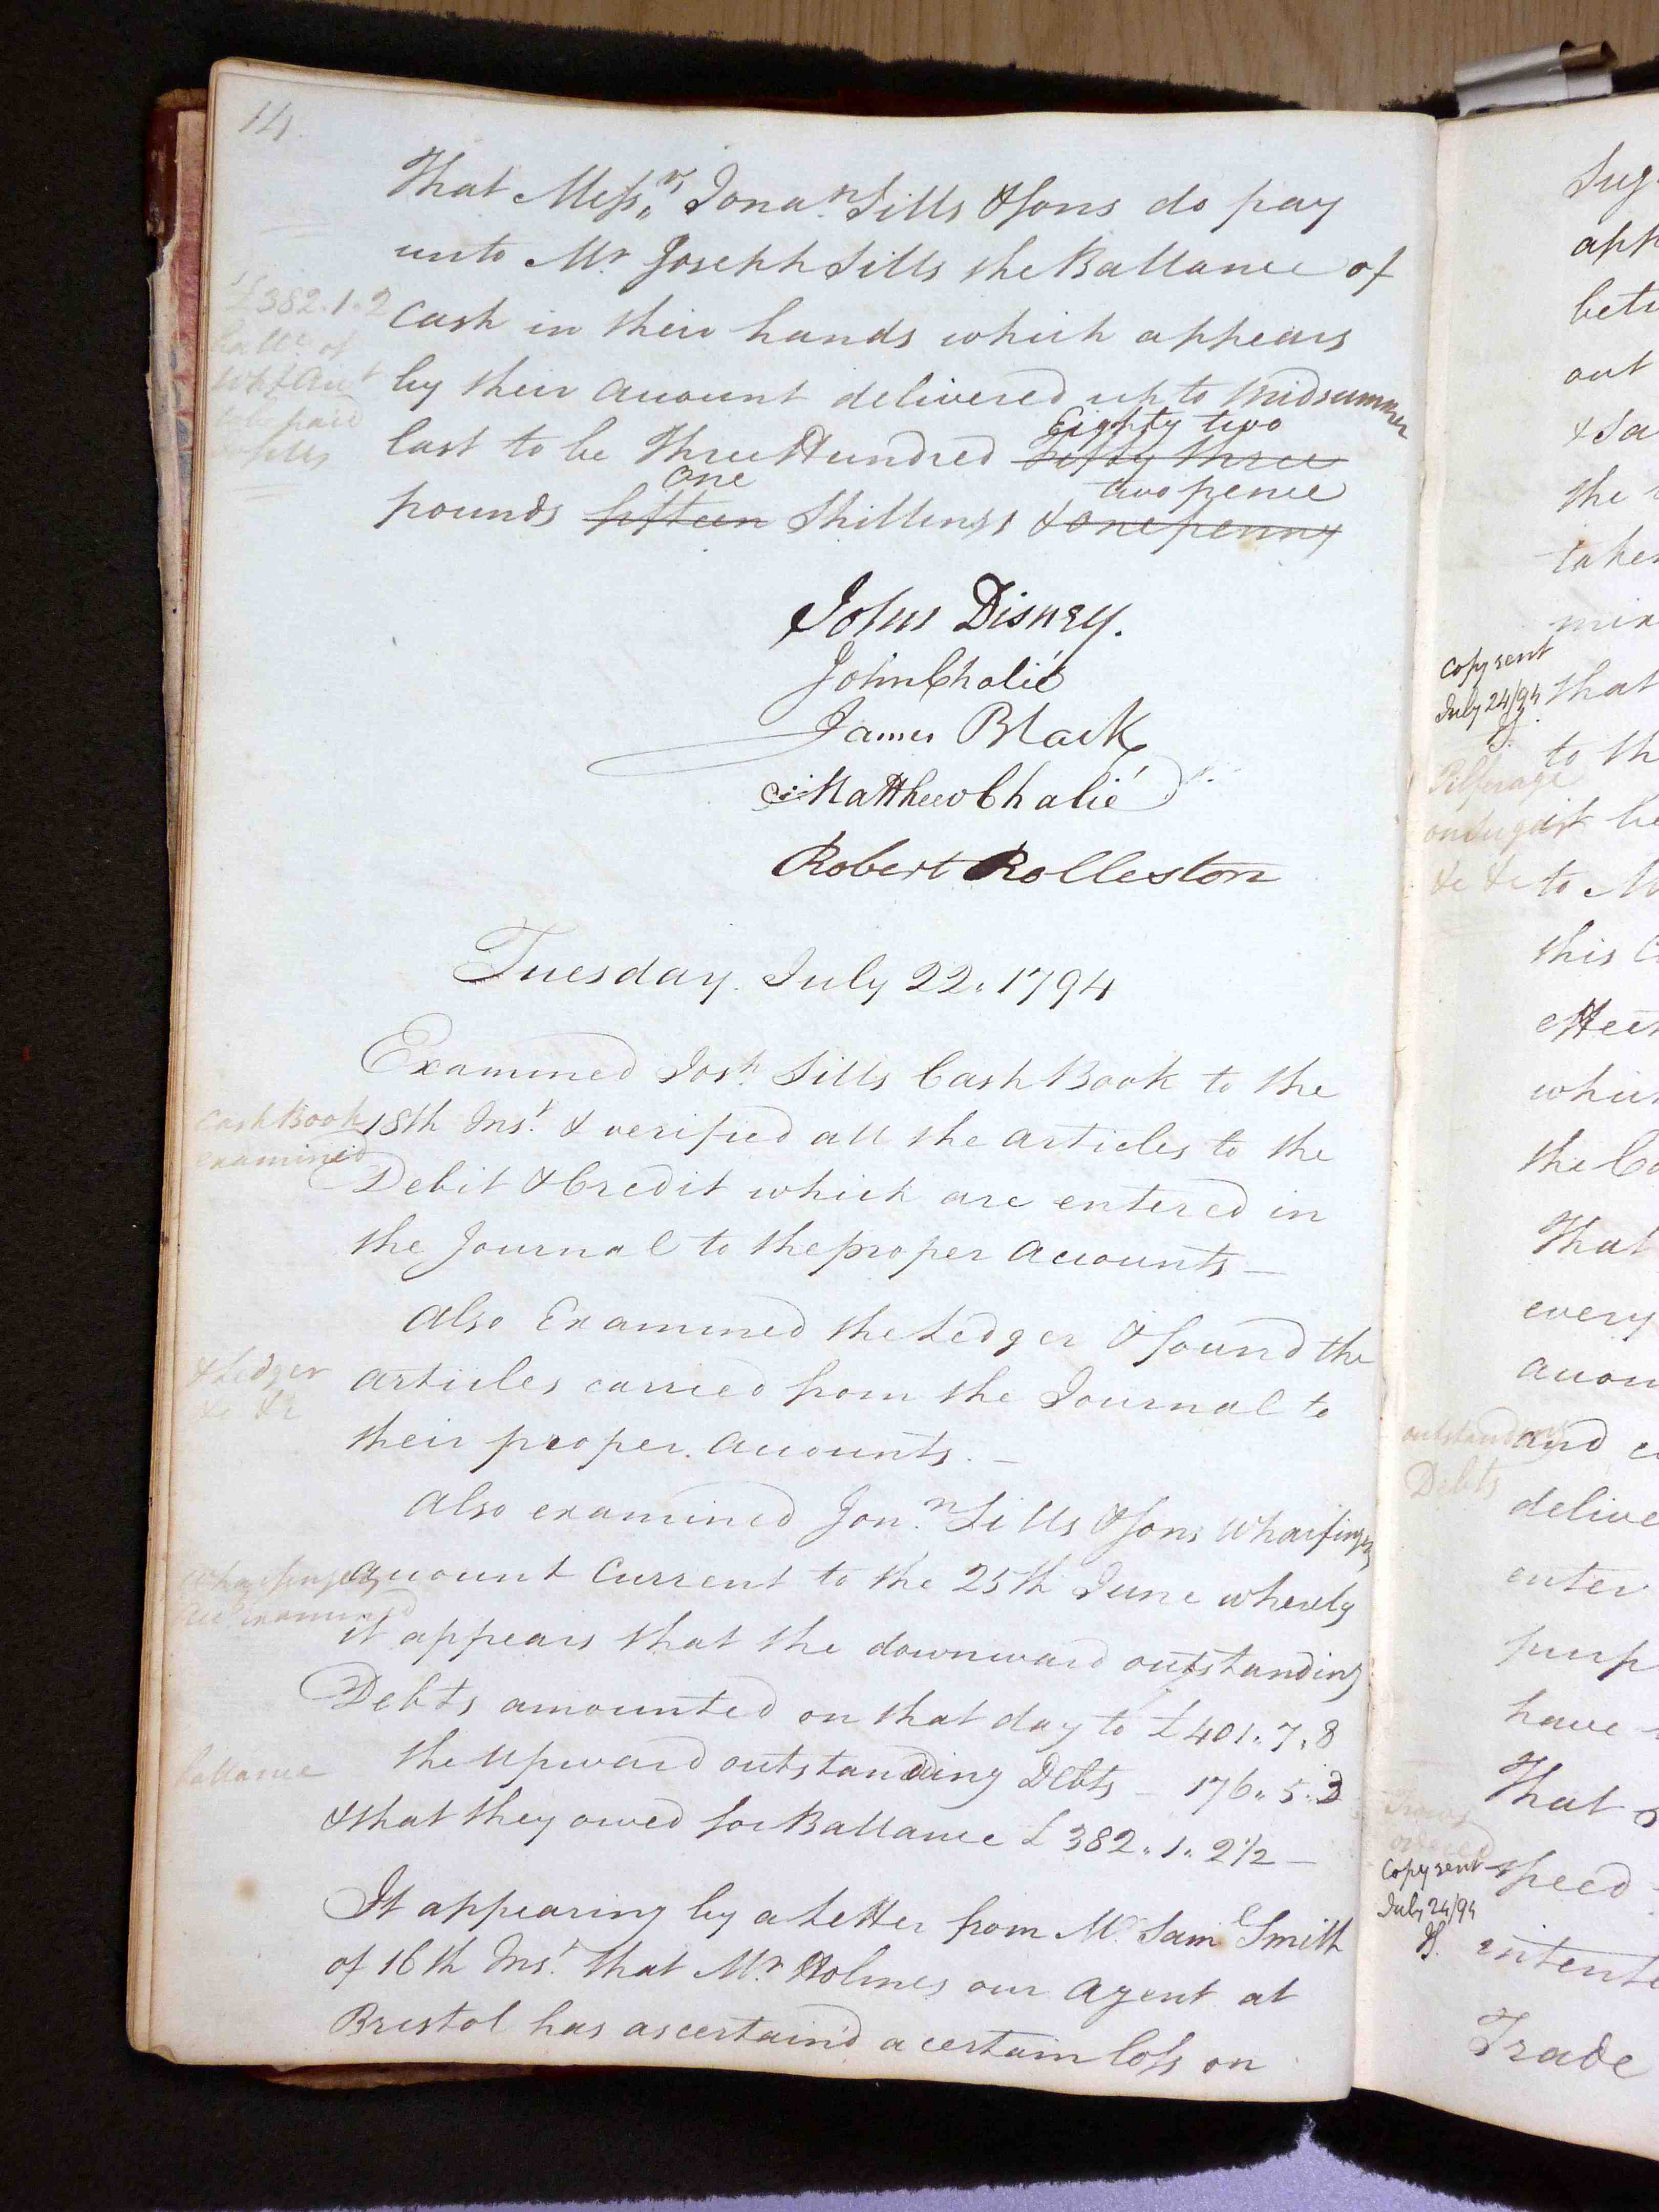 14.
That Messrs. Jonan. Sills & Sons do pay
unto Mr Joseph Sills the Ballance of
£382.1.2
Cash in their hands which appears
Ballce of
Whf Acct
by their account delivered up to Midsummer
to be paid
Eighty two
last to be Three Hundred Fifty three
one
two pence
pounds fifteen Shillings & one penny
John Disney.
John Chalié
James Black
Matthew Chalié
Robert Rolleston
Tuesday. July 22. 1794
Examined Josh. Sills Cash Book to the
Cash Book
examined
18th Inst. & verified all the articles to the
Debit & Credit which are entered in
the Journal to the proper accounts —
Also Examined the Ledger & found the
& Ledger
&c &c
articles carried from the Journal to
their proper accounts. —
Also examined Jonn. Sills & Sons Wharfingers
Wharfingers
acct examined
account Current to the 25th June whereby
it appears that the downward outstanding
Debts amounted on that day to £401.7.8
ballance
the upward outstanding Debts — 176.5.3
& that they owed for Ballance £382.1.2½ —
It appearing by a Letter from Mr. Saml Smith
of 16th Inst. that Mr. Holmes our agent at
Bristol has ascertain'd a certain loss on
Sug
app
betw
out
& Sa
the
taken
mix
Copy sent
July 24/94
that
to th
Pilferage
on Sugar
it be
&c &c
to M
this C
effect
which
the Co
That
every
accou
outstanding
Debts
and c
delive
enter
purp
have
That
Trows
speed
Copy sent
July 24/94
intent
Trade